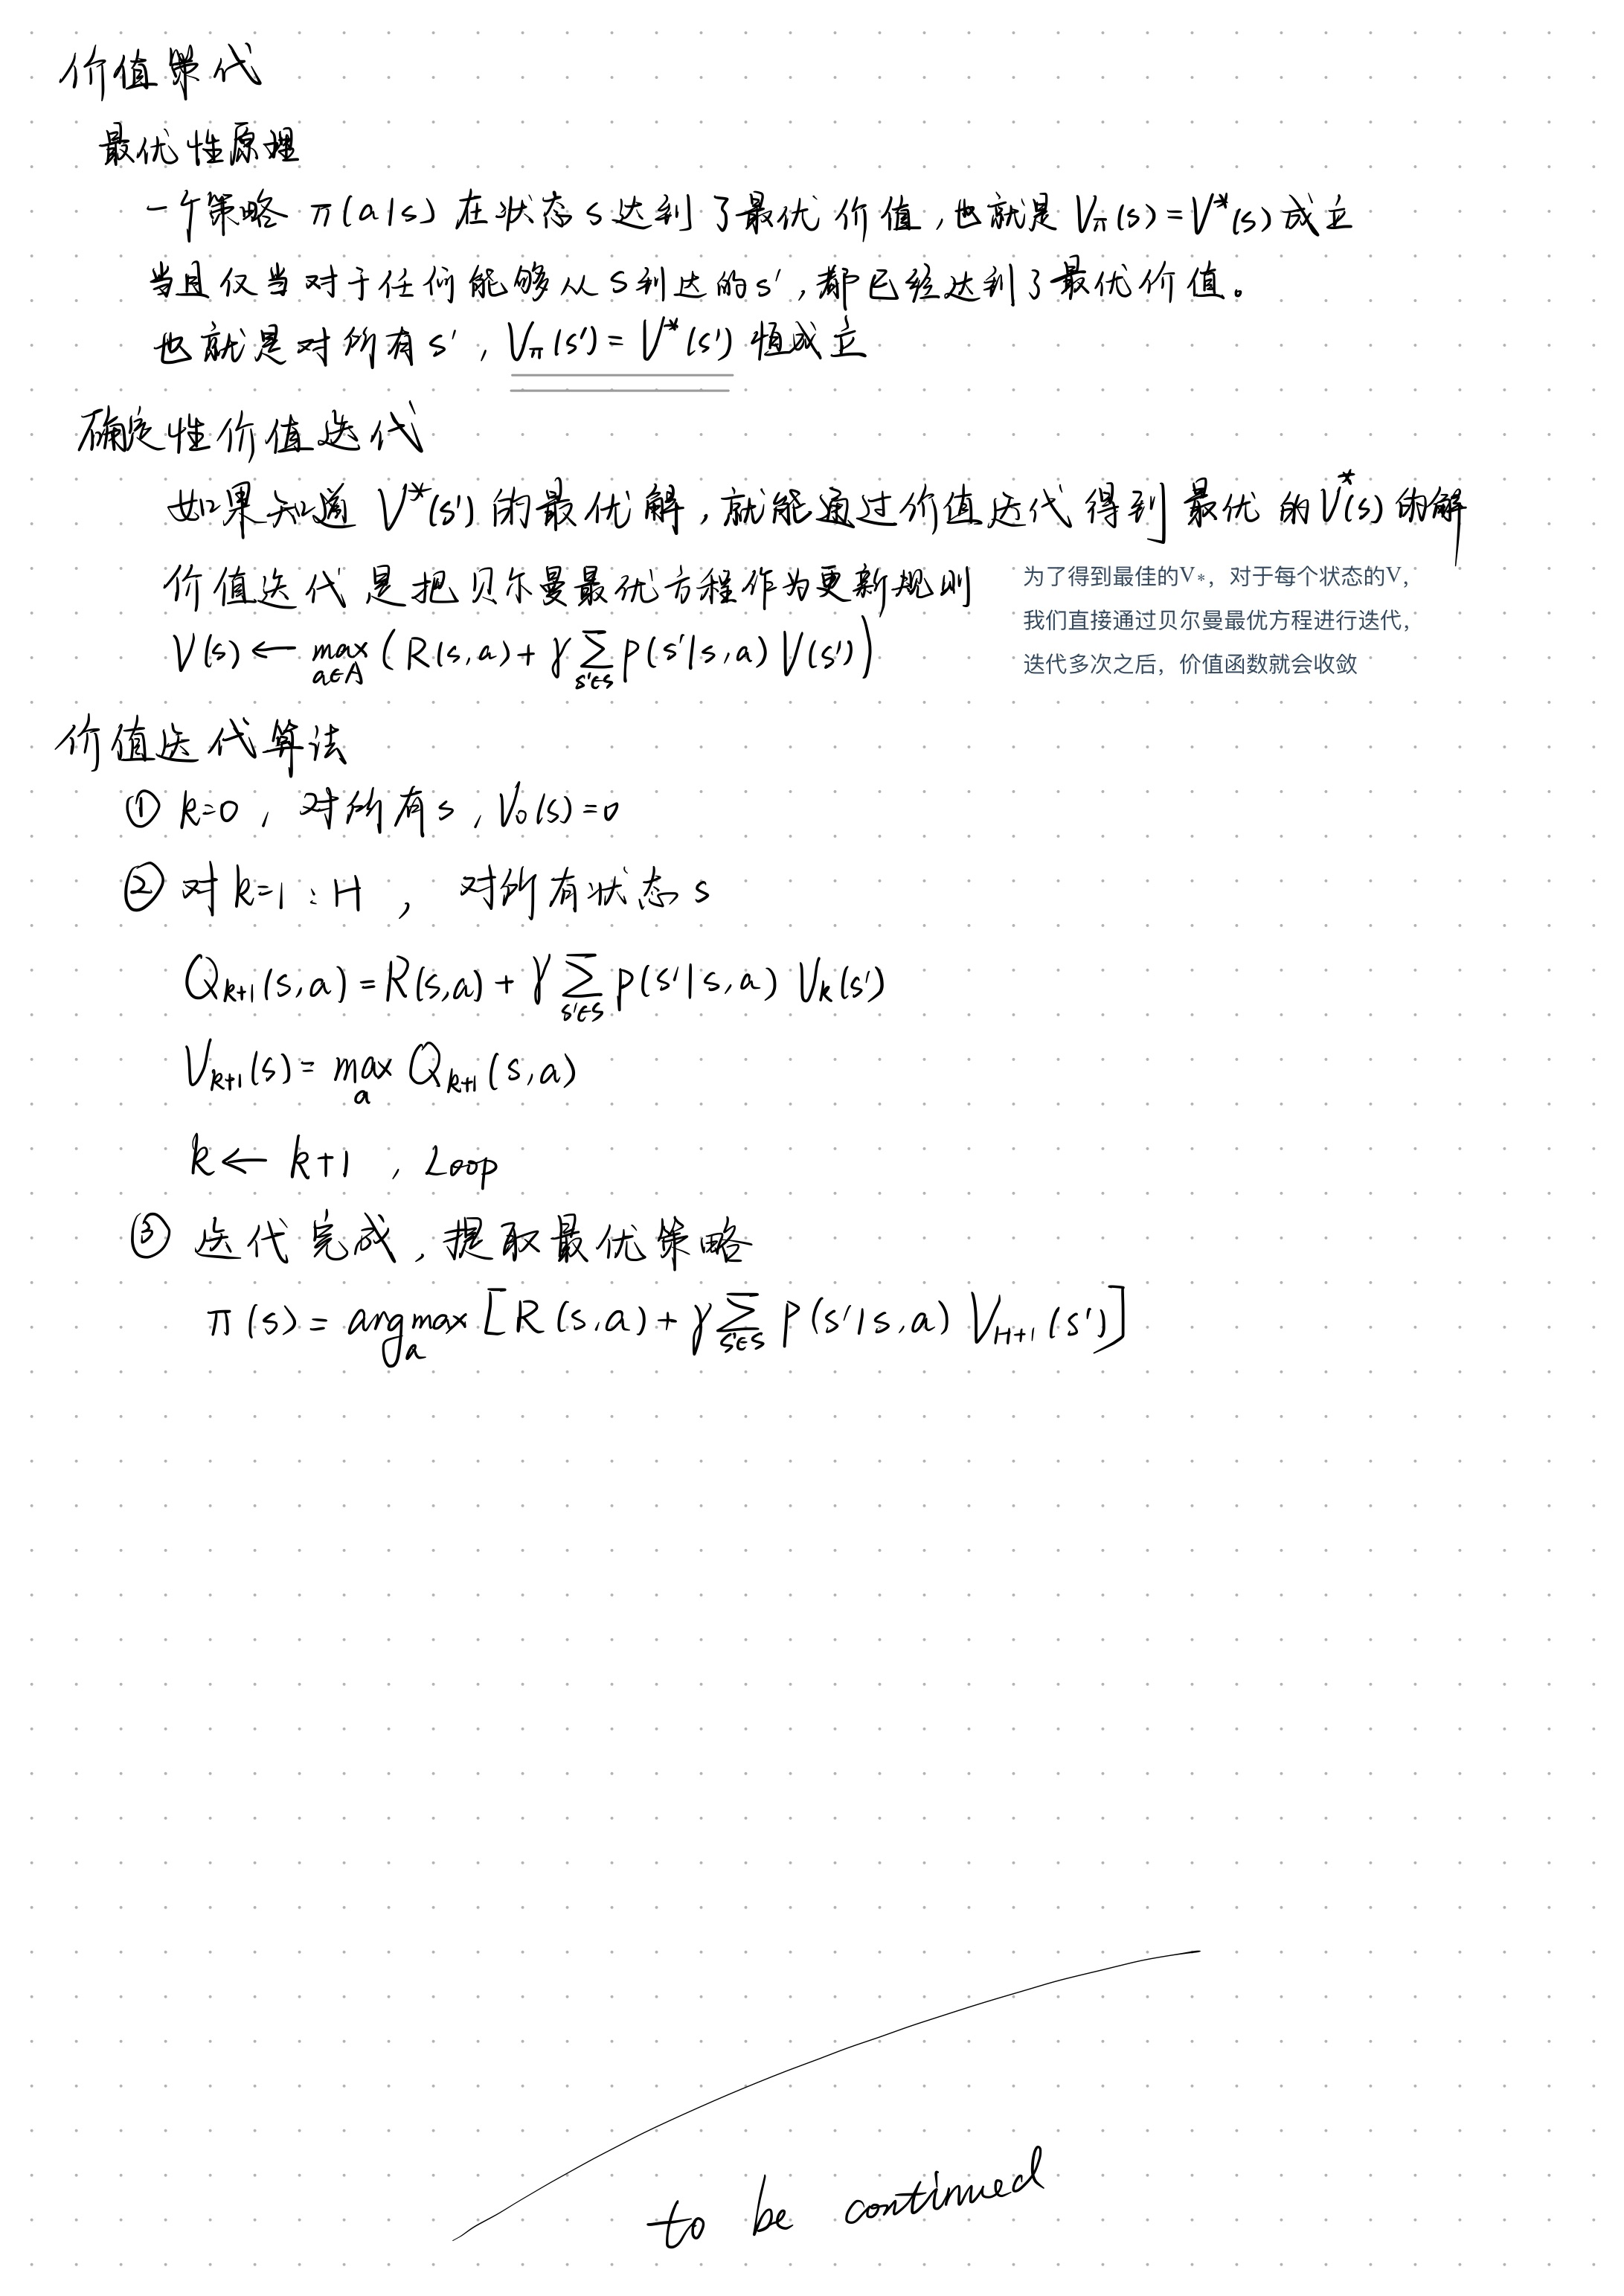 价值迭代
最优性原理
一个策略 π(a|s) 在状态 s 达到了最优价值,也就是 Vπ(s)=V*(s) 成立
当且仅当对于任何能够从 s 到达的 s',都已经达到了最优价值。
也就是对所有 s',Vπ(s')=V*(s') 恒成立
确定性价值迭代
如果知道 V*(s') 的最优解,就能通过价值迭代得到最优的 V*(s) 的解
价值迭代是把贝尔曼最优方程作为更新规则
V(s) ← max a∈A (R(s,a)+γ∑ s'∈S p(s'|s,a) V(s'))
为了得到最佳的V*,对于每个状态的V,
我们直接通过贝尔曼最优方程进行迭代,
迭代多次之后,价值函数就会收敛
价值迭代算法
① k=0,对所有 s,V₀(s)=0
② 对 k=1:H,对所有状态 s
Qk+1(s,a)=R(s,a)+γ∑ s'∈S p(s'|s,a) Vk(s')
Vk+1(s)=max a Qk+1(s,a)
k ← k+1,Loop
③ 迭代完成,提取最优策略
π(s)=argmax a [R(s,a)+γ∑ s'∈S p(s'|s,a) VH+1(s')]
to be continued